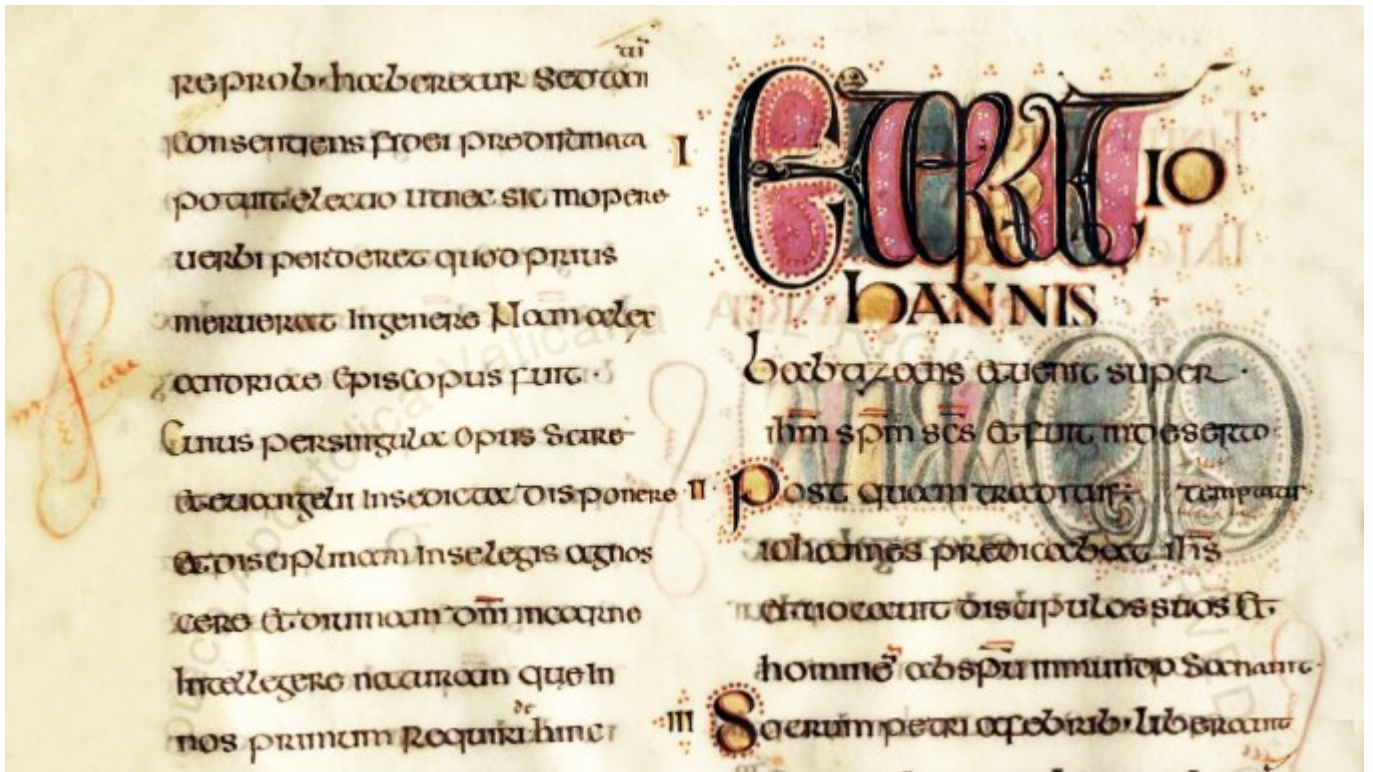 reprob· haberetur sed
consentiens fidei predistinata
potuit electio ut nec sic in opere
uerbi perderet quod prius
meruerat In genere Nam alex
andriae episcopus fuit·
Cuius per singula opus scire
et euangelii In se dicta disponere
et disciplinam In se legis agnos
cere et diuinam dni in carne
Intellegere naturam que In
de
nos primum Requiri hinc
I ET ERAT IO
hANNIS
babtizans et uenit super·
ihm spm scs et fuit in deserto·
II Post quam traditus: temptatur·
iohannes predicabat ihs
et uocauit discipulos suos et
homine ab spu inmundo Sanauit·
III Socrum petri a febrib· liberauit